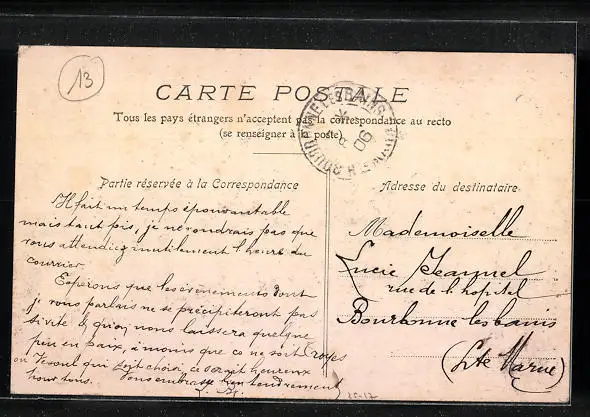 13
CARTE POSTALE
Tous les pays étrangers n'acceptent pas la correspondance au recto
(se renseigner à la poste)
BOURBONNE-LES-BAINS
06
Partie réservée à la Correspondance
Il fait un temps épouvantable
mais tant pis, je ne voudrais pas que
vous attendiez inutilement l'heure du
courrier.
Espérons que les évènements dont
je vous parlais ne se précipiteront pas
si vite & qu'on nous laissera quelque
peu en paix, à moins que ce ne soit Troyes
ou Vesoul qui soit choisi, ce serait heureux
pour tous. Vous embrasse bien tendrement
Adresse du destinataire
Mademoiselle
Lucie Jeannel
rue de l'hopital
Bourbonne les bains
(Hte Marne)